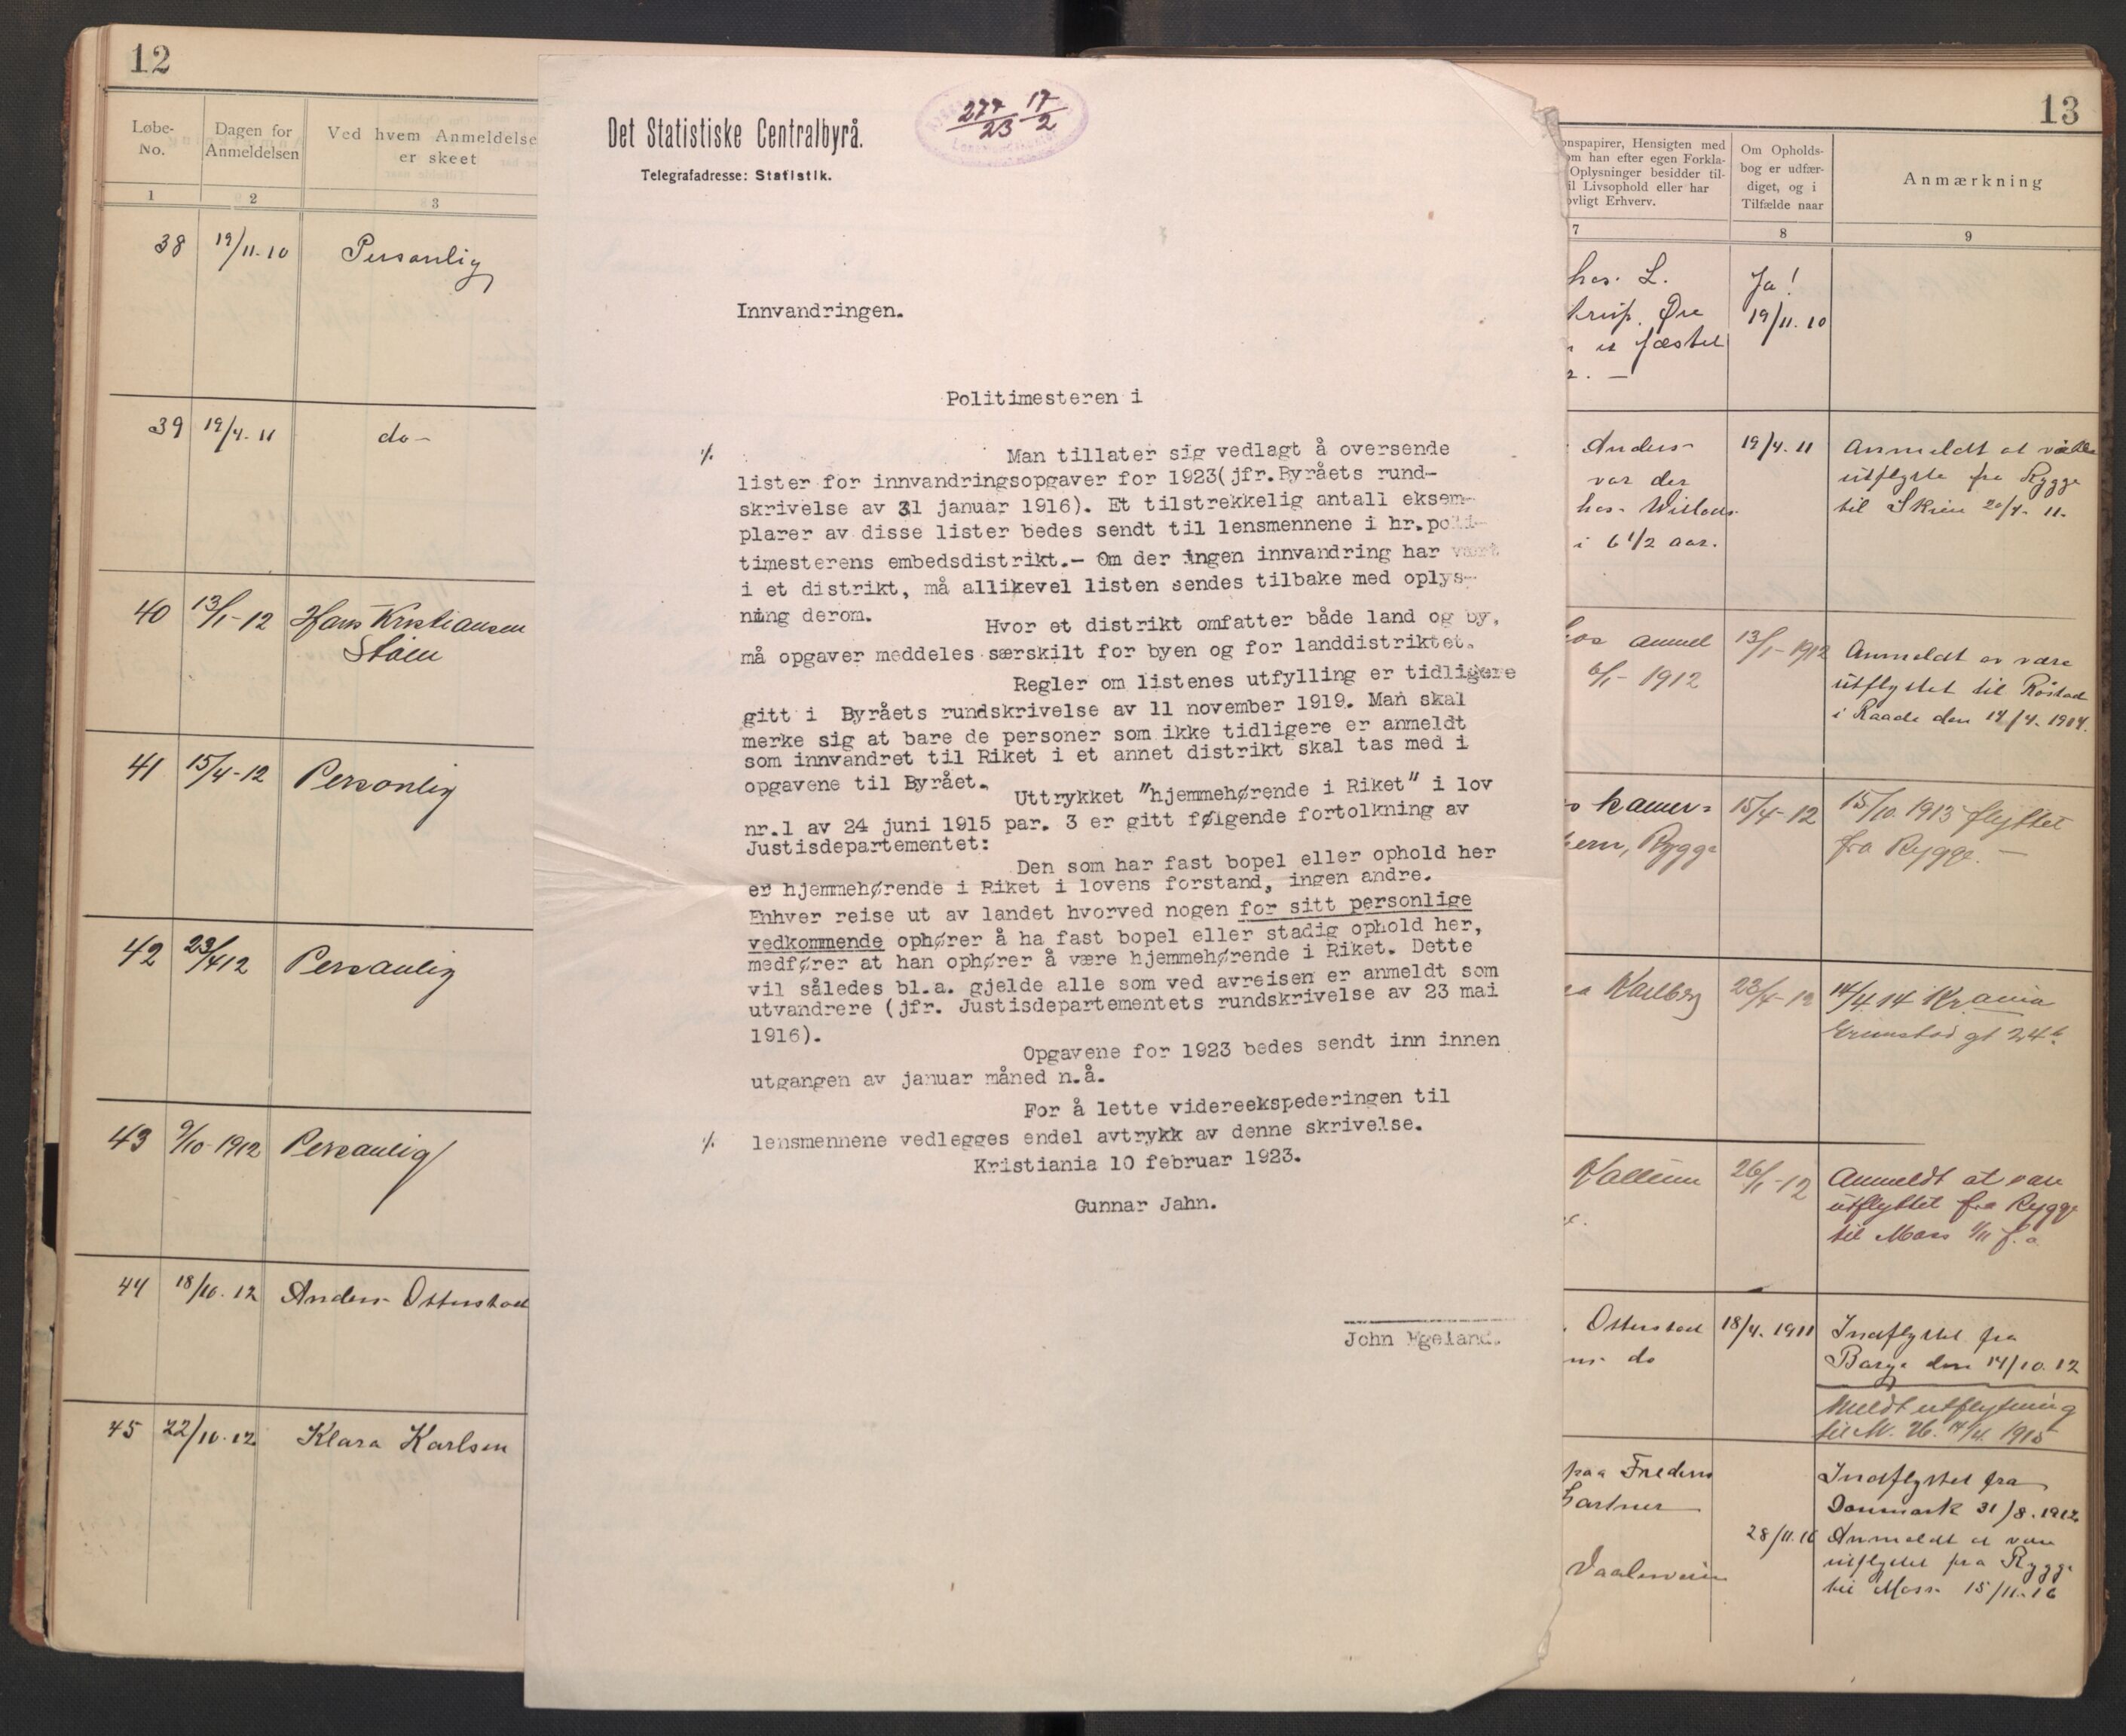 12
Løbe-
No.
Dagen for
Anmeldelsen
Ved hvem Anmeldelse
er skeet
1
2
3
38
19/11-10
Personlig
39
19/4-11
do-
40
13/1-12
Hans Kristiansen
Støen
41
15/4-12
Personlig
42
23/4 12
Personlig
43
9/10-1912
Personlig
44
18/10.12
Anders Otterstad
45
22/10.12
Klara Karlsen
Det Statistiske Centralbyrå.
Telegrafadresse: Statistik.
277/23 17/2
Innvandringen.
Politimesteren i
⁒
Man tillater sig vedlagt å oversende
lister for innvandringsopgaver for 1923(jfr.Byråets rund-
skrivelse av 31 januar 1916). Et tilstrekkelig antall eksem-
plarer av disse lister bedes sendt til lensmennene i hr.poli-
timesterens embedsdistrikt.- Om der ingen innvandring har vært
i et distrikt, må allikevel listen sendes tilbake med oplys-
ning derom.
Hvor et distrikt omfatter både land og by,
må opgaver meddeles særskilt for byen og for landdistriktet.
Regler om listenes utfylling er tidligere
gitt i Byråets rundskrivelse av 11 november 1919. Man skal
merke sig at bare de personer som ikke tidligere er anmeldt
som innvandret til Riket i et annet distrikt skal tas med i
opgavene til Byrået.
Uttrykket "hjemmehørende i Riket" i lov
nr.1 av 24 juni 1915 par. 3 er gitt følgende fortolkning av
Justisdepartementet:
Den som har fast bopel eller ophold her
er hjemmehørende i Riket i lovens forstand, ingen andre.
Enhver reise ut av landet hvorved nogen for sitt personlige
vedkommende ophører å ha fast bopel eller stadig ophold her,
medfører at han ophører å være hjemmehørende i Riket. Dette
vil således bl.a. gjelde alle som ved avreisen er anmeldt som
utvandrere (jfr. Justisdepartementets rundskrivelse av 23 mai
1916).
Opgavene for 1923 bedes sendt inn innen
utgangen av januar måned n.å.
For å lette videreekspederingen til
⁒ lensmennene vedlegges endel avtrykk av denne skrivelse.
Kristiania 10 februar 1923.
Gunnar Jahn.
John Egeland.
13
onspapirer, Hensigten med
om han efter egen Forkla-
Oplysninger besidder til-
il Livsophold eller har
ovligt Erhverv.
Om Opholds-
bog er udfær-
diget, og i
Tilfælde naar
Anmærkning
7
8
9
hos. L.
Øre
fæstet
Ja!
19/11.10
Anders
var der
hos
i 6 1/2 aar.
19/4.11
Anmeldt at være
utflytte fra Rygge
til Skien 20/4-11.
6/1-1912
13/1-1912
Anmeldt at være
utflyttet til Råstad
i Raade den 14/4.1914.
kamer-
Rygge
15/4-12
15/10.1913 flyttet
fra Rygge.
Karlberg
23/4-12
14/4.14 Kr.ania
gt 24
Vallum
26/1-12
Anmeldt at være
utflyttet fra Rygge
til Moss 1/11 f.a.
Otterstad
do
18/4.1911
Indflyttet fra
Barge den 14/10.12
Meldt utflytning
til
1915
paa Fredens
Gartner
Vaalerveien
28/11.16
Indflyttet fra
Danmark 31/8.1912
Anmeldt at være
utflyttet fra Rygge
til Moss 15/11-16